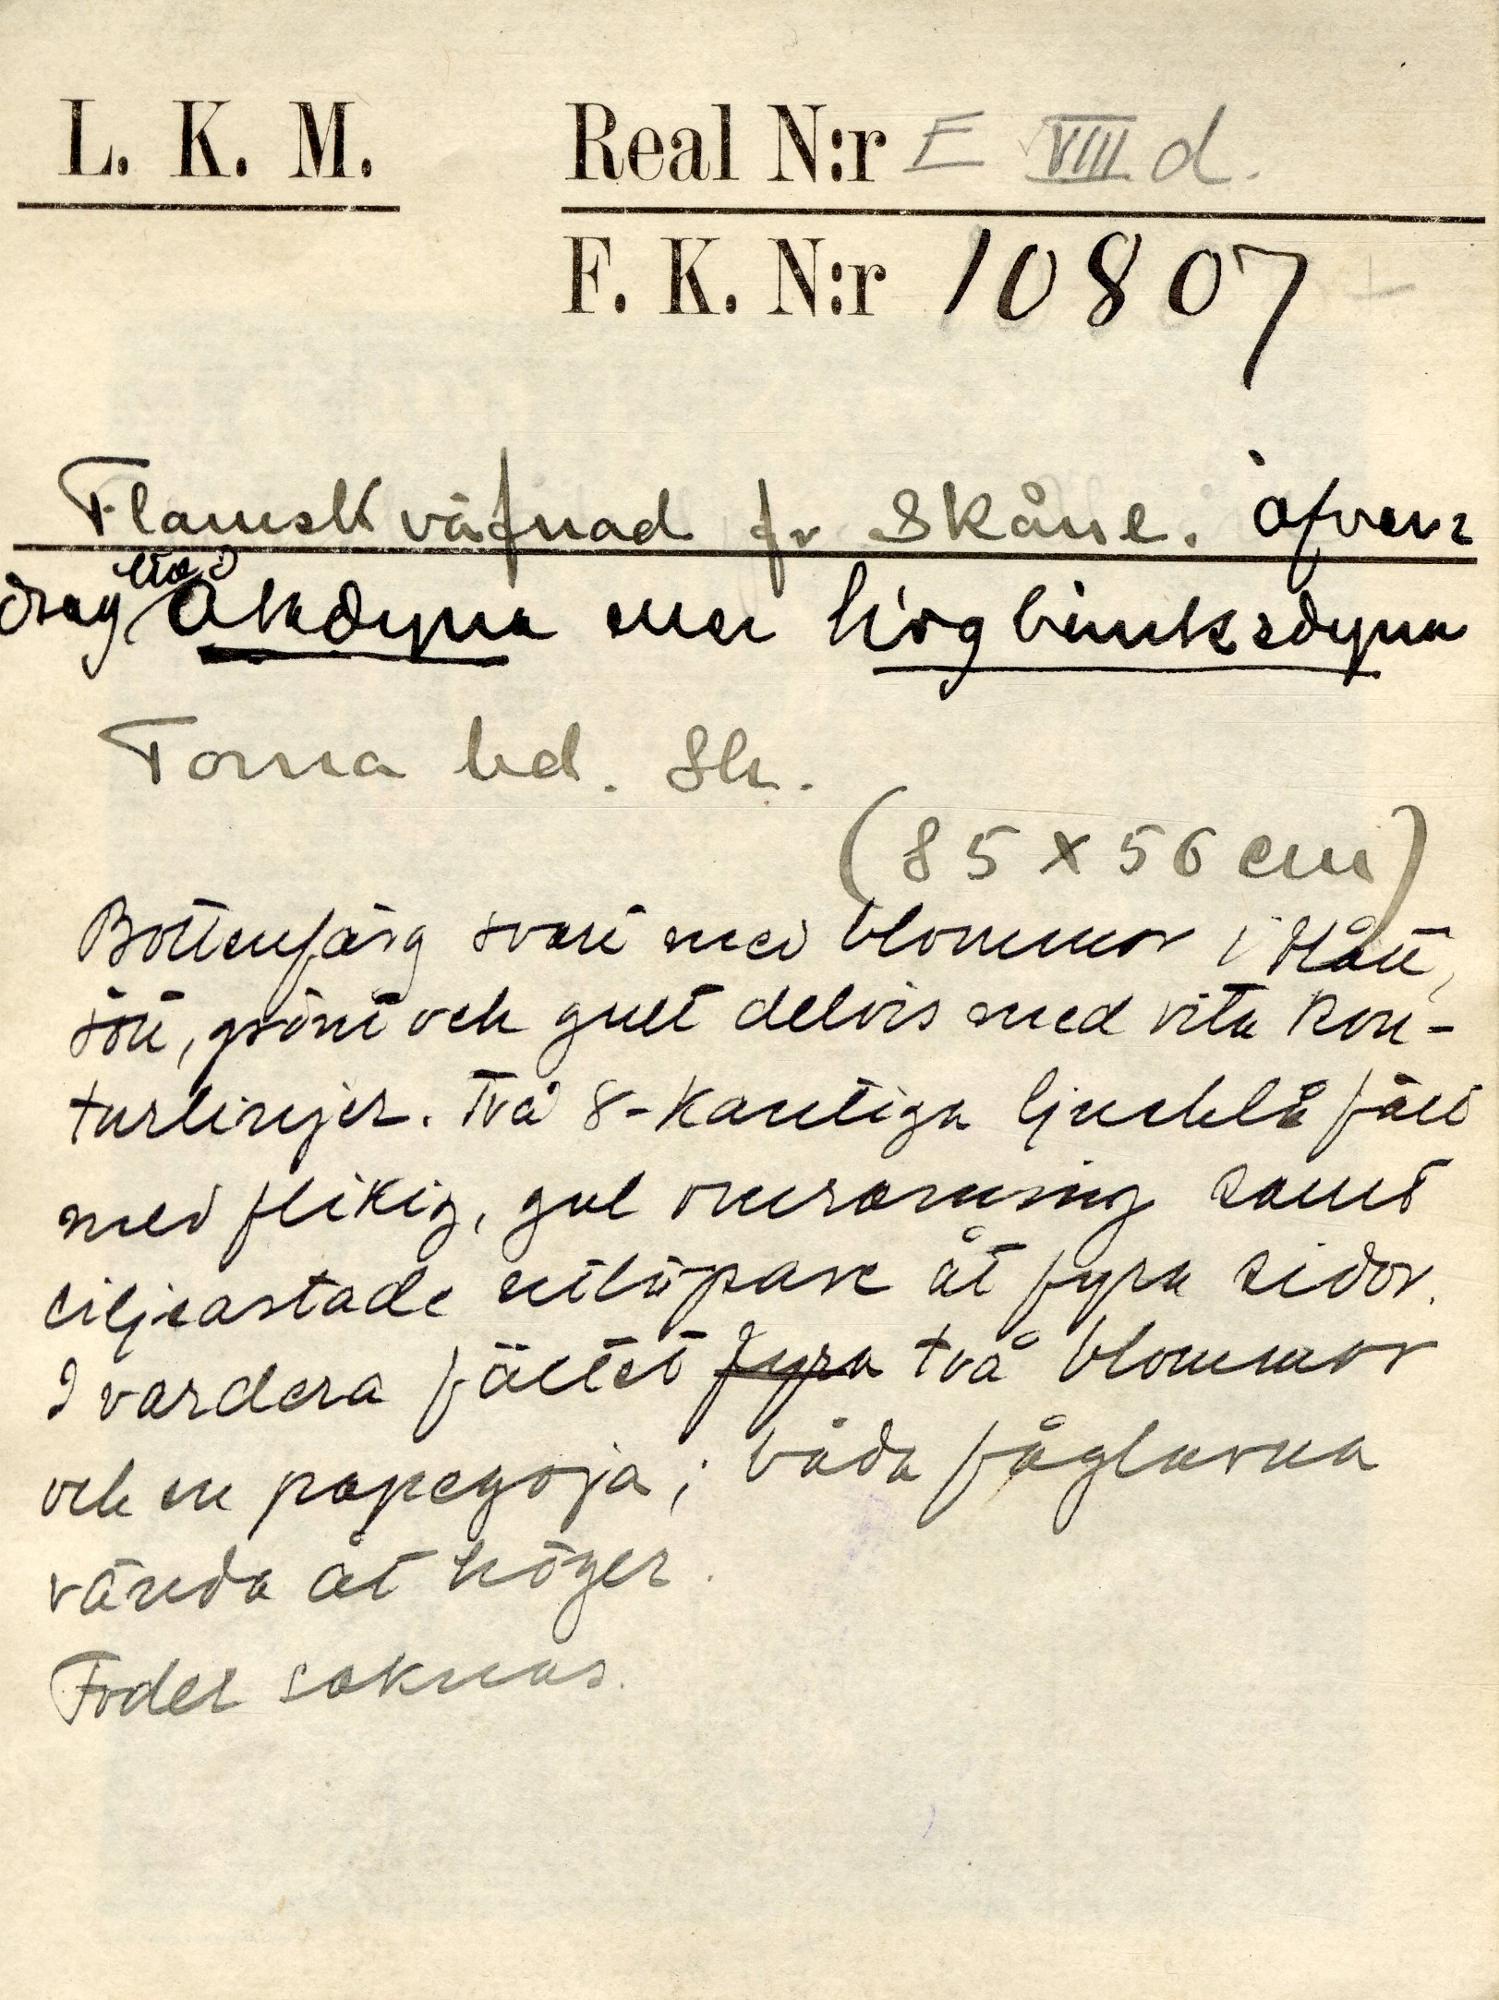 L. K. M.
Real N:r E VIII d.
F. K. N:r 10807
Flamskväfnad fr Skåne. öfver=
drag till Åkdyna eller högbänksdyna
Torna hd. Sk.
(85 x 56 cm)
Bottenfärg svart med blommor i blått,
rött, grönt och gult delvis med vita kon-
turlinjer. Två 8-kantiga ljusblå fält
med flikig, gul omramning samt
liljeartade utlöpare åt fyra sidor.
I vardera fältet fyra två blommor
och en papegoja; båda fåglarna
vända åt höger.
Foder saknas.